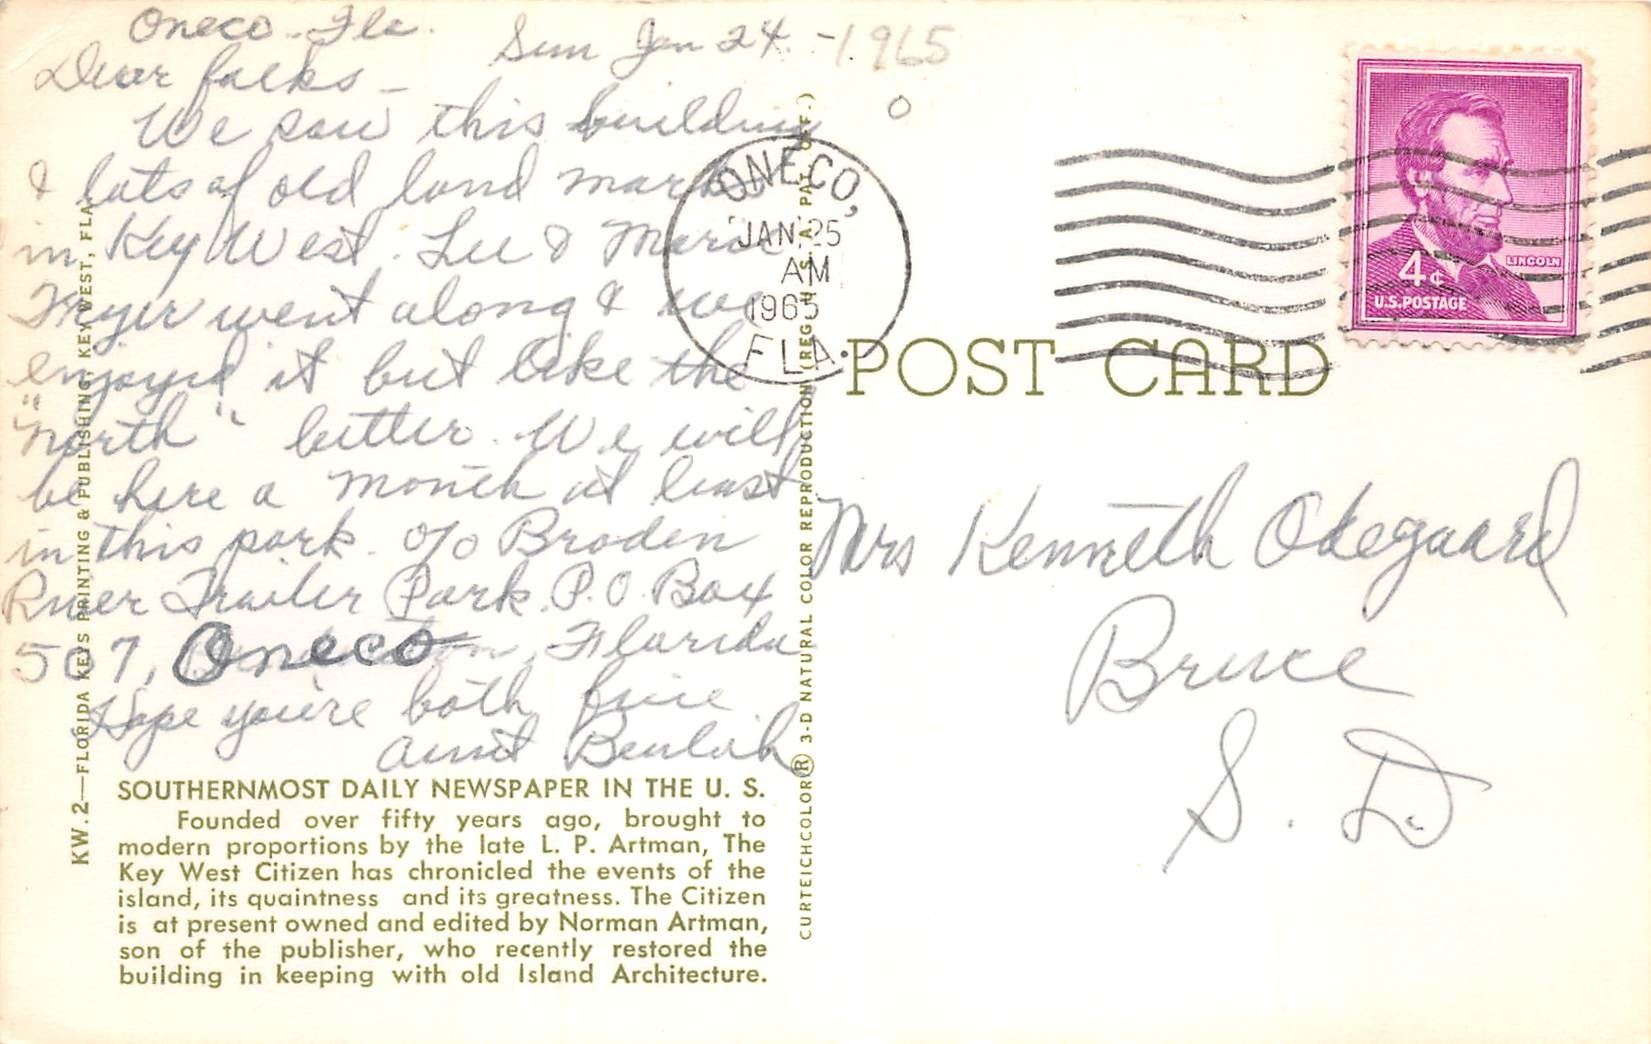 Oneco - Fla.
Sun Jan 24 - 1965
Dear folks -
We saw this building
& lots of old land marks
in Key West. Lee &
Meyer went along & we
enjoyed it but like the
"north" better. We will
be here a month at least
in this park. c/o Braden
River Trailer Park. P.O. Box
507, Oneco, Florida
Hope you're both fine
Aunt Beulah
SOUTHERNMOST DAILY NEWSPAPER IN THE U. S.
Founded over fifty years ago, brought to
modern proportions by the late L. P. Artman, The
Key West Citizen has chronicled the events of the
island, its quaintness and its greatness. The Citizen
is at present owned and edited by Norman Artman,
son of the publisher, who recently restored the
building in keeping with old Island Architecture.
KW. 2—FLORIDA KEYS PRINTING & PUBLISHING, KEY WEST, FLA.
CURTEICHCOLOR® 3-D NATURAL COLOR REPRODUCTION (REG. U.S.A. PAT. OFF.)
ONECO,
JAN 25
AM
1965
FLA.
LINCOLN
4¢
U.S. POSTAGE
POST CARD
Mrs Kenneth Odegaard
Bruce
S. D.